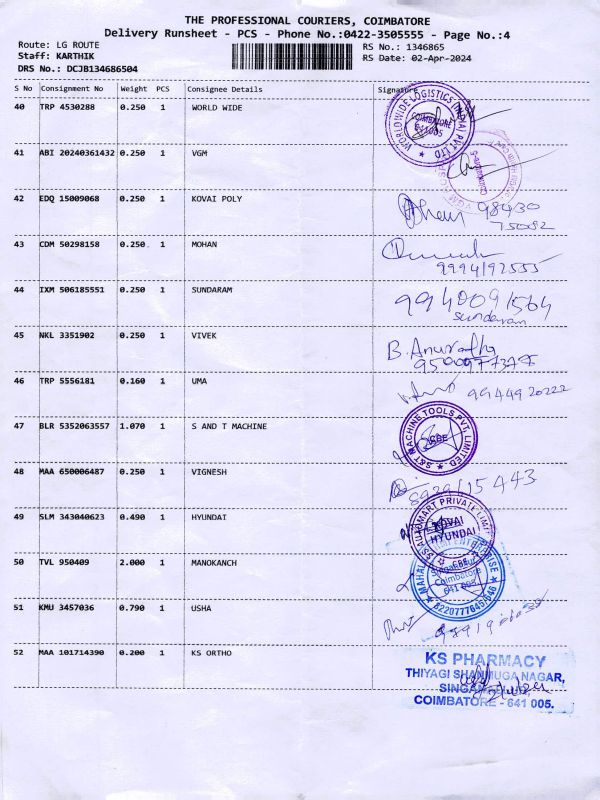 THE PROFESSIONAL COURIERS, COIMBATORE
Delivery Runsheet - PCS - Phone No.:0422-3505555 - Page No.:4
Route: LG ROUTE RS No.: 1346865
Staff: KARTHIK RS Date: 02-Apr-2024
DRS No.: DCJB134686504
S No Consignment No Weight PCS Consignee Details Signature
40 TRP 4530288 0.250 1 WORLD WIDE
WORLDWIDE LOGISTICS (INDIA) PVT LTD
COIMBATORE
641005
41 ABI 20240361432 0.250 1 VGM
VGM
42 EDQ 15009068 0.250 1 KOVAI POLY
98430
75082
43 CDM 50298158 0.250 1 MOHAN
9994192555
44 IXM 506185551 0.250 1 SUNDARAM
9940091564
Sundaram
45 NKL 3351902 0.250 1 VIVEK
B. Anuratha
46 TRP 5556181 0.160 1 UMA
9944920222
47 BLR 5352063557 1.070 1 S AND T MACHINE
S&T MACHINE TOOLS PVT. LIMITED
48 MAA 650006487 0.250 1 VIGNESH
49 SLM 343040623 0.490 1 HYUNDAI
PRIVATE LIMITED
KOVAI
HYUNDAI
50 TVL 950409 2.000 1 MANOKANCH
Coimbatore
641 005
51 KMU 3457036 0.790 1 USHA
52 MAA 101714390 0.200 1 KS ORTHO
KS PHARMACY
THIYAGI SHANMUGA NAGAR,
COIMBATORE - 641 005.